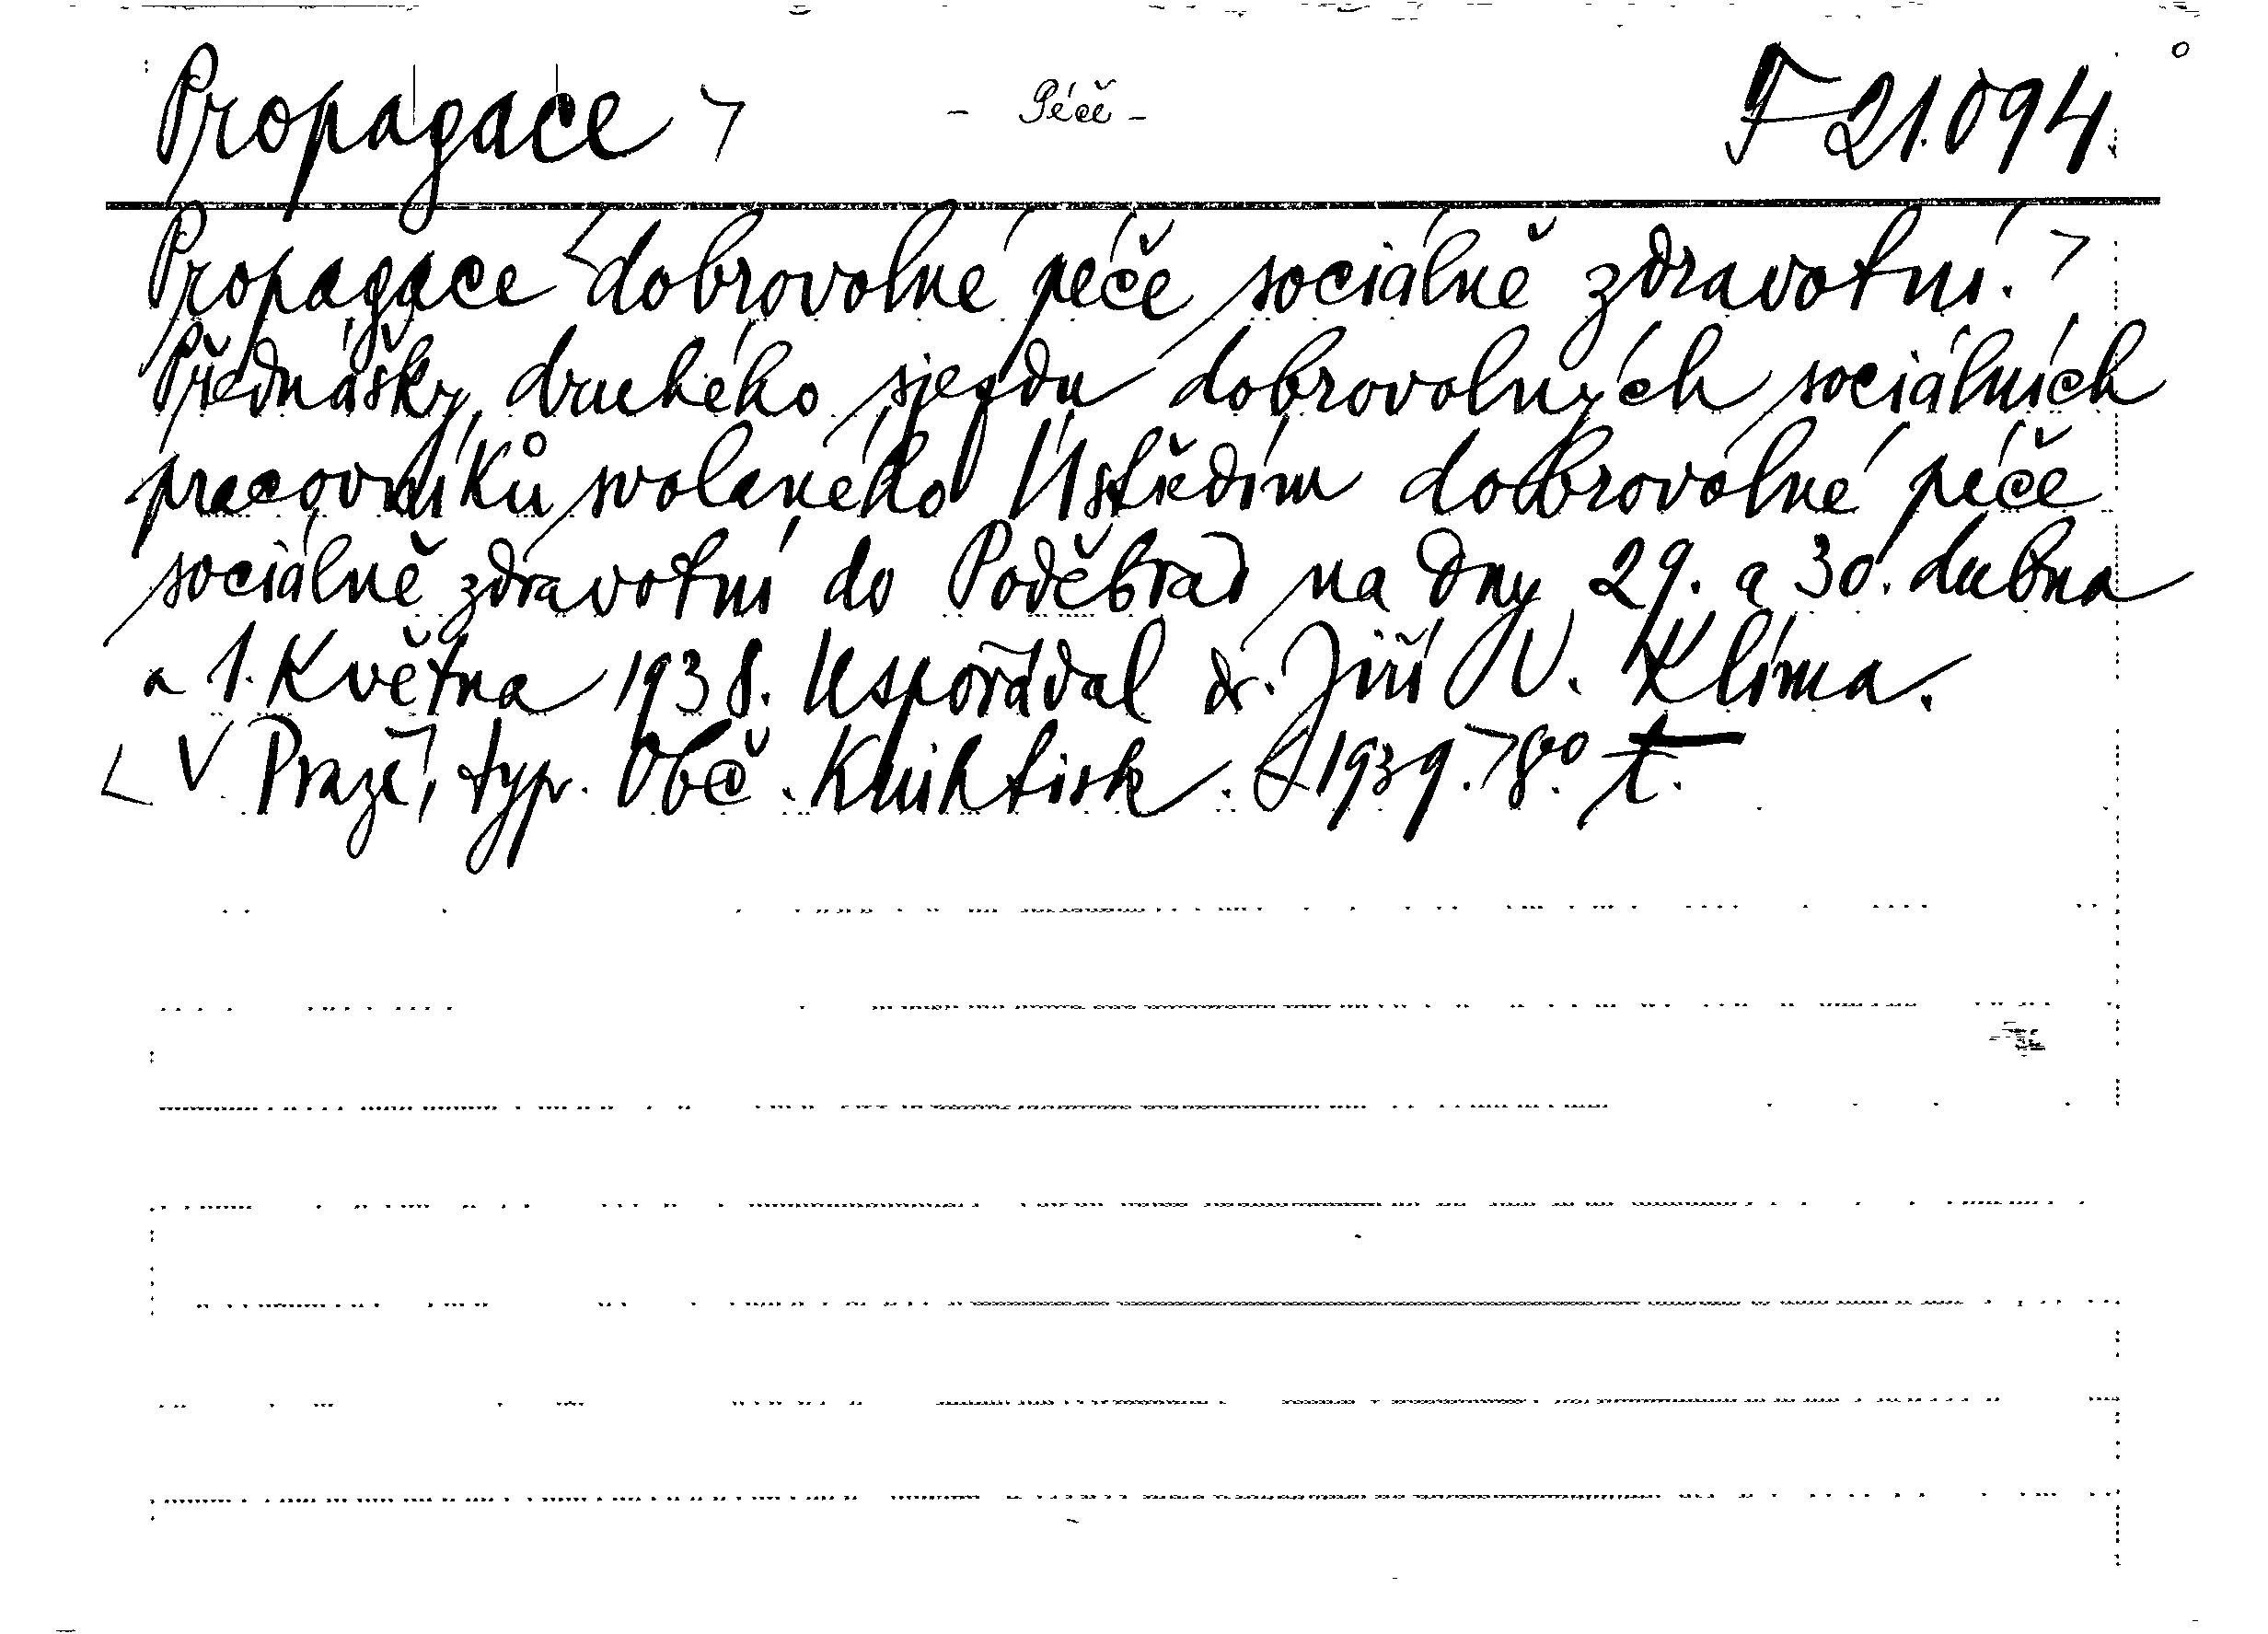 Propagace > - Péče - F 21.094
Propagace <dobrovolné péče sociálně zdravotní.>
Přednášky druhého sjezdu dobrovolných sociálních
pracovníků svolaného Ústředím dobrovolné péče
sociálně zdravotní do Poděbrad na dny 29. a 30. dubna
a 1. května 1938. Uspořádal dr. Jiří V. Klíma.
< V Praze, typ. Obč. knihtisk. < 1939. > 8°.